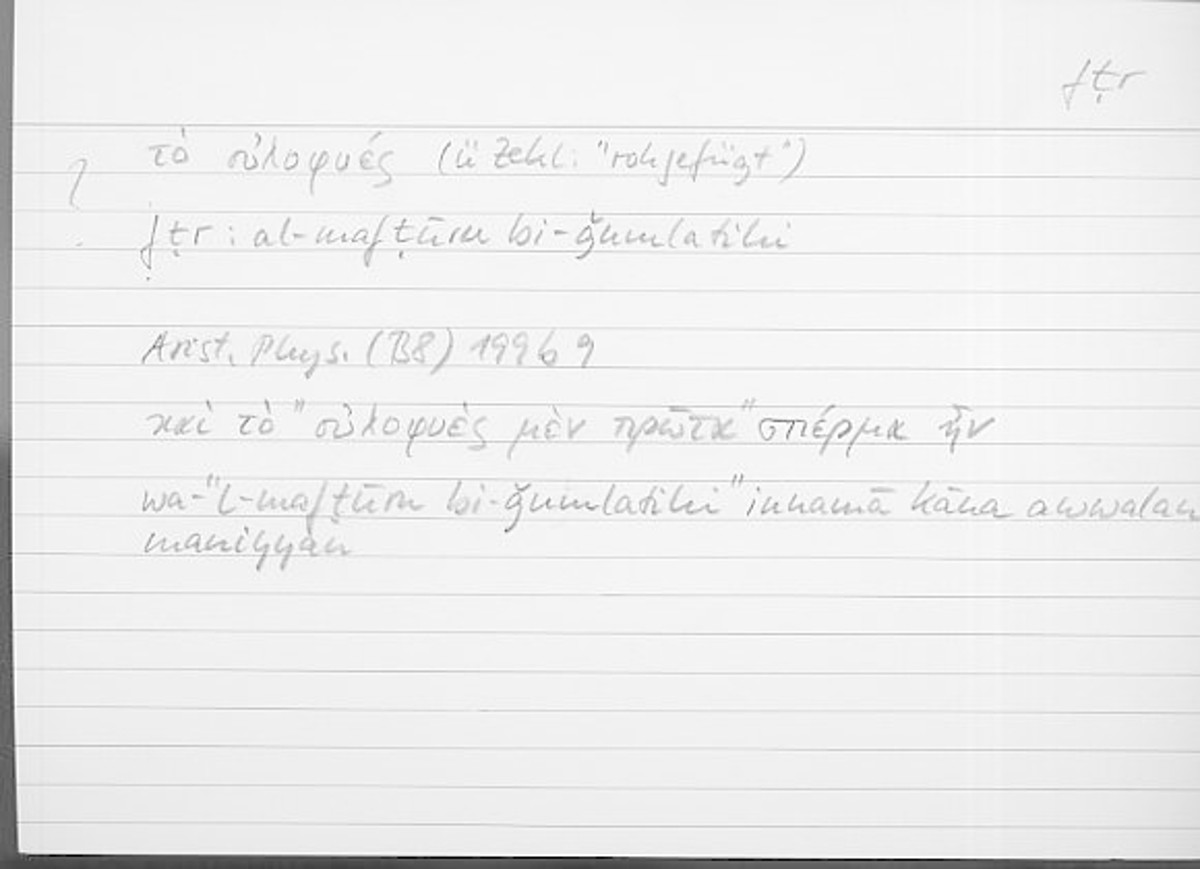 fṭr
τὸ οὐλοφυές (Ü Zekl: "rohgefügt")
?
fṭr : al-mafṭūru bi-ǧumlatihi
Arist. Phys. (B8) 199b 9
καὶ τὸ "οὐλοφυὲς μὲν πρῶτα" σπέρμα ἦν
wa-"l-mafṭūru bi-ǧumlatihi" innamā kāna awwalan
maniyyan